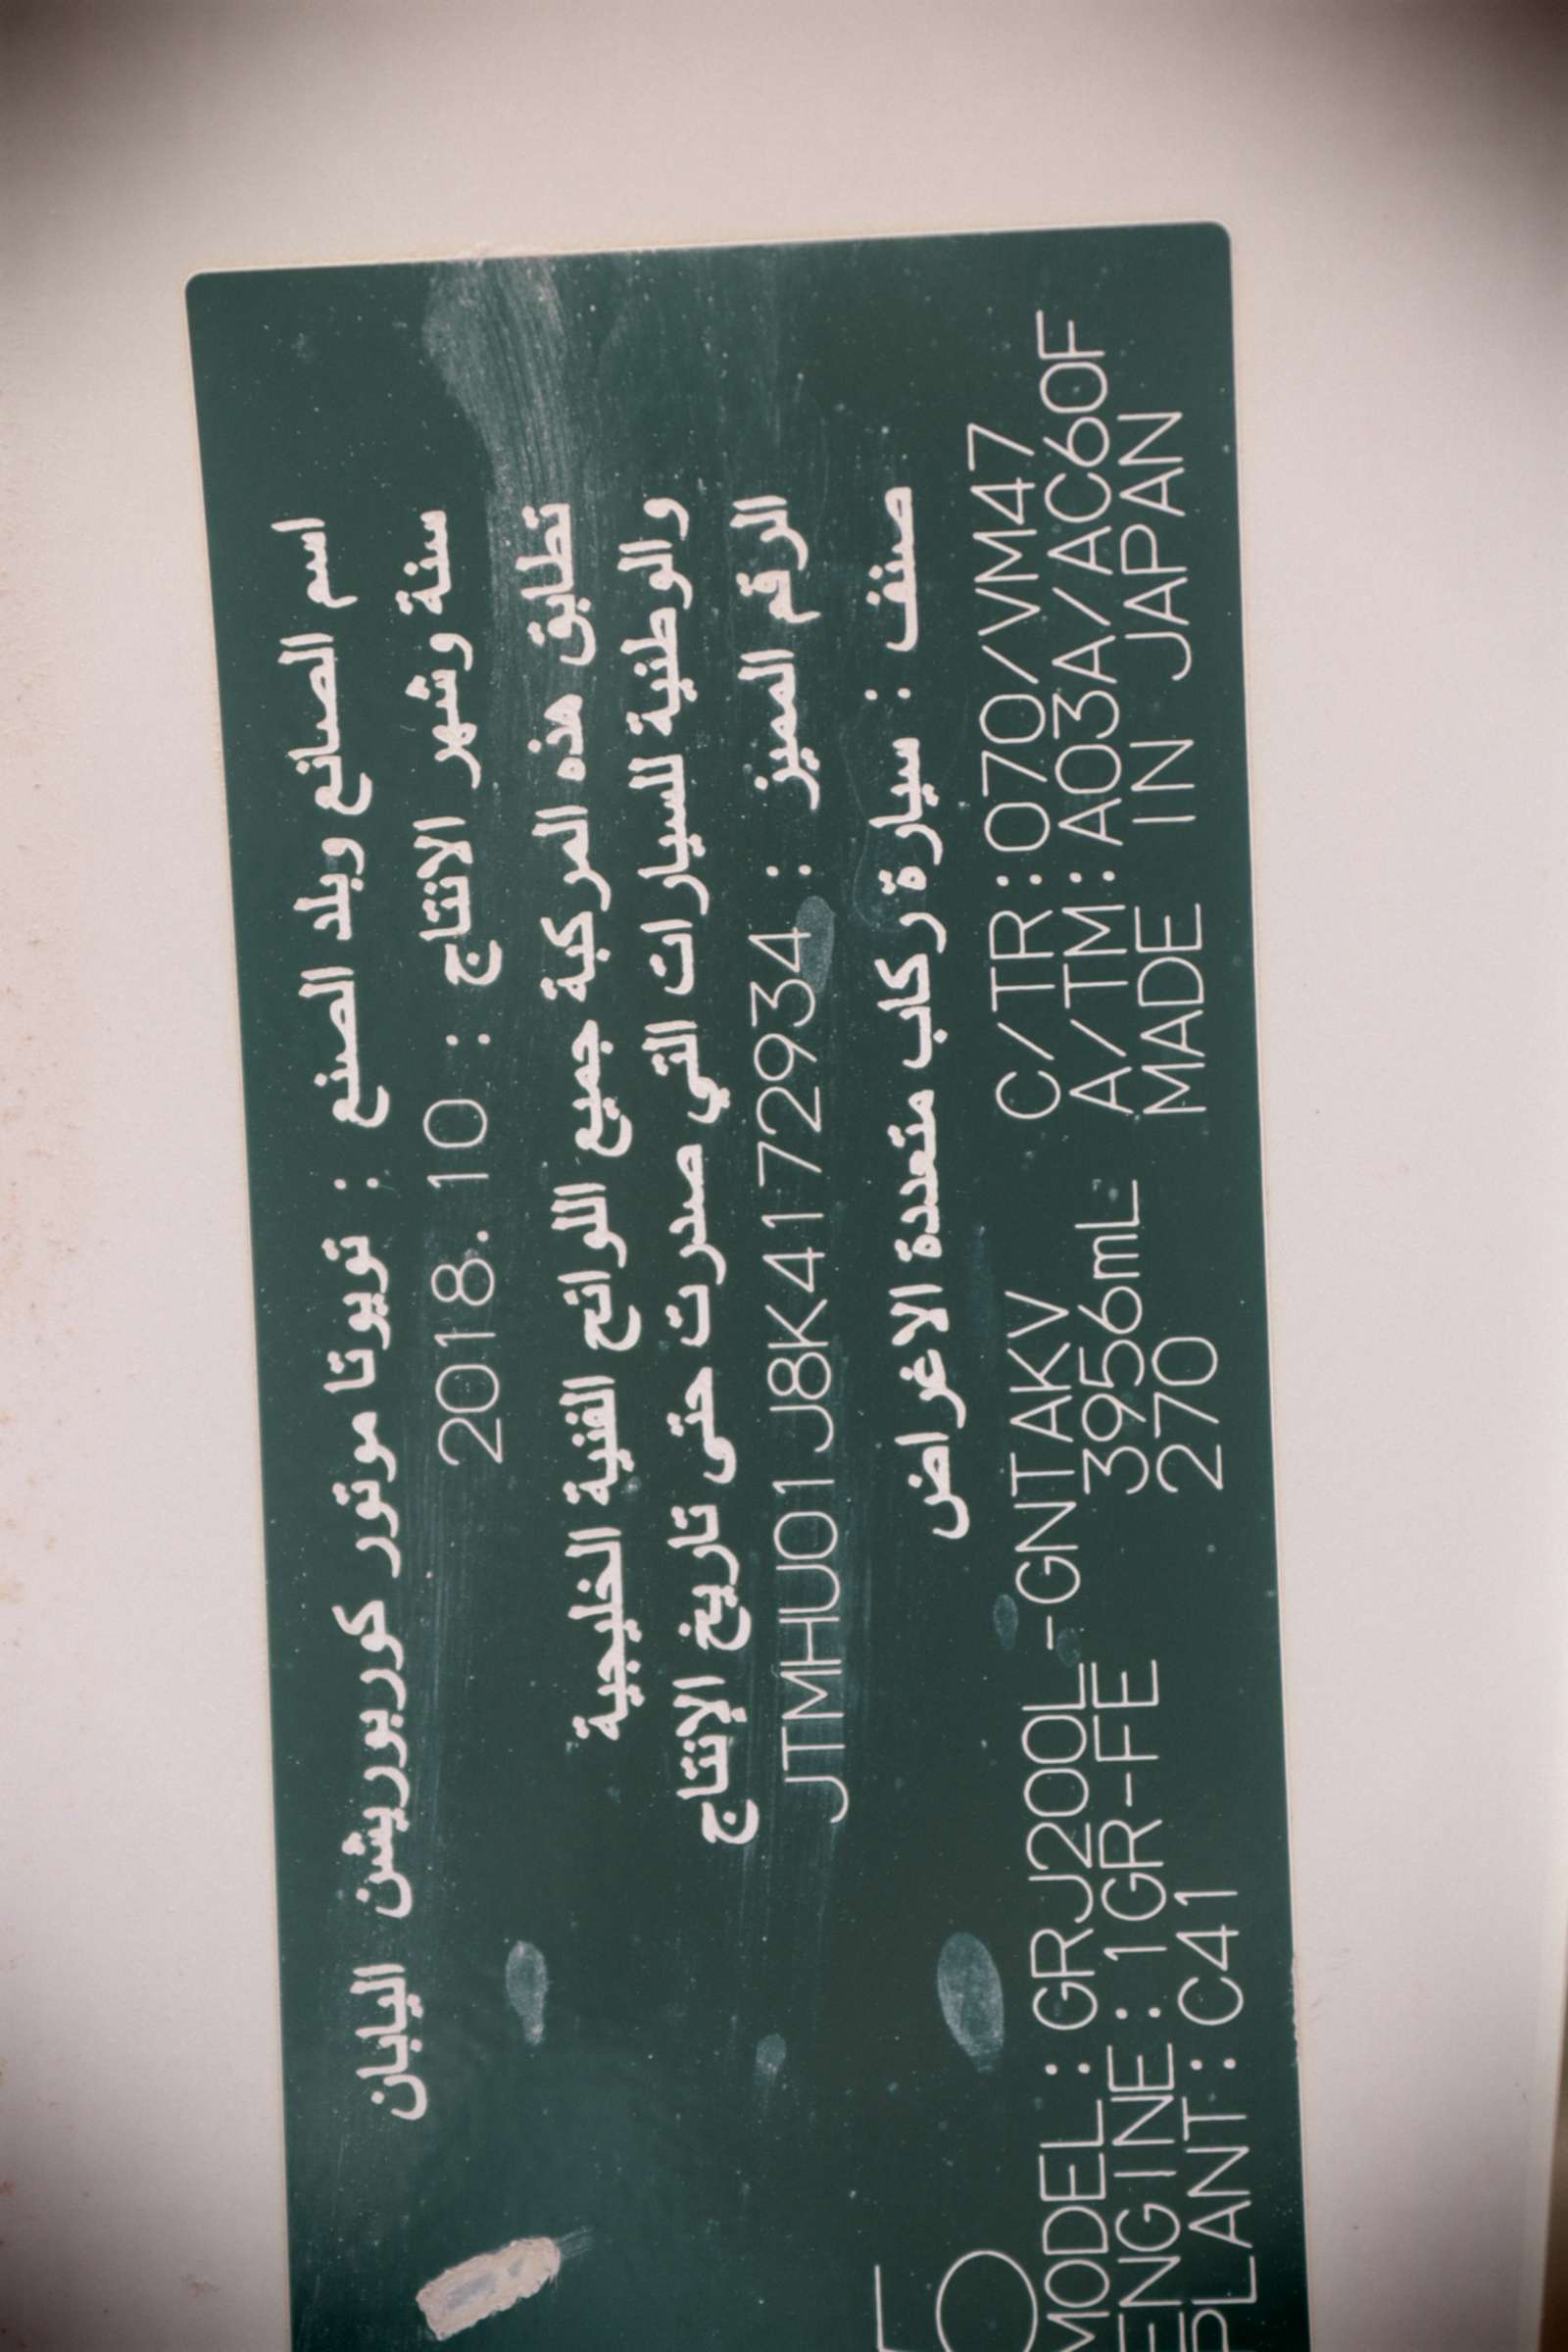 اسم الصانع وبلد الصنع : تويوتا موتور كوربوريشن اليابان
سنة وشهر الانتاج : 2018.10
تطابق هذه المركبة جميع اللوائح الفنية الخليجية
والوطنية للسيارات التي صدرت حتى تاريخ الإنتاج
الرقم المميز : JTMHU01J8K4172934
صنف : سيارة ركاب متعددة الاغراض
5
MODEL : GRJ200L-GNTAKV C/TR:070/VM47
ENGINE:1GR-FE 3956mL A/TM:A03A/AC60F
PLANT:C41 270 MADE IN JAPAN